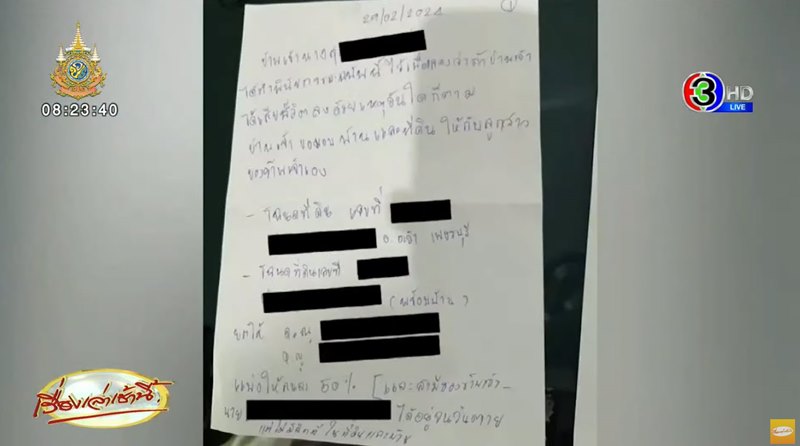 29/02/2024
1
ข้าพเจ้านาง
ได้ทำพินัยกรรมฉบับนี้ไว้เพื่อแสดงว่าถ้าข้าพเจ้า
ได้เสียชีวิตลงด้วยเหตุอันใดก็ตาม
ข้าพเจ้าขอมอบบ้านและที่ดินให้กับลูกสาว
ของข้าพเจ้าเอง
- โฉนดที่ดิน เลขที่
เพชรบุรี
- โฉนดที่ดินเลขที่
(พร้อมบ้าน)
ยกให้
แบ่งให้คนละ 50% [และสามีของข้าพเจ้า
นาย ได้อยู่จนวันตาย
แต่ไม่มีสิทธิ์ในที่ดินและบ้าน
08:23:40
3 HD
LIVE
เรื่องเล่าเช้านี้